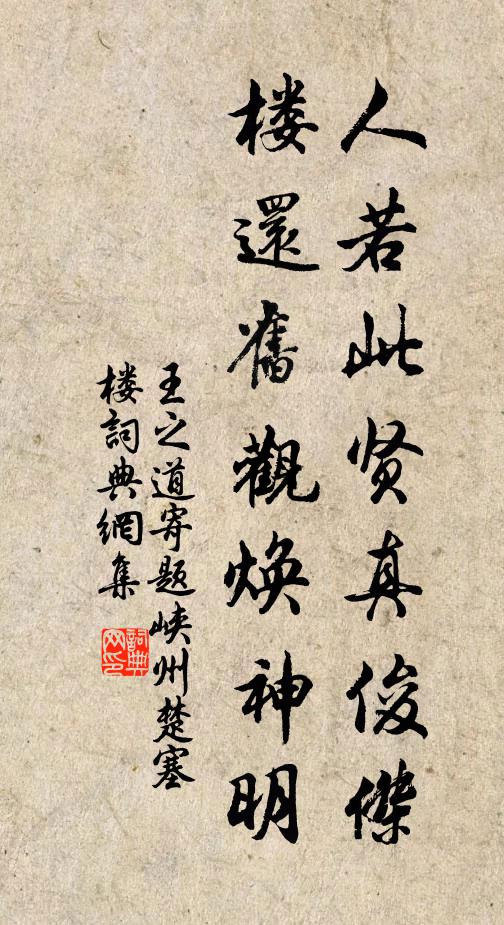 人若此贤真俊傑
楼還舊觀焕神明
王之道寄题峡州楚塞
楼詞典網集
詞典网印